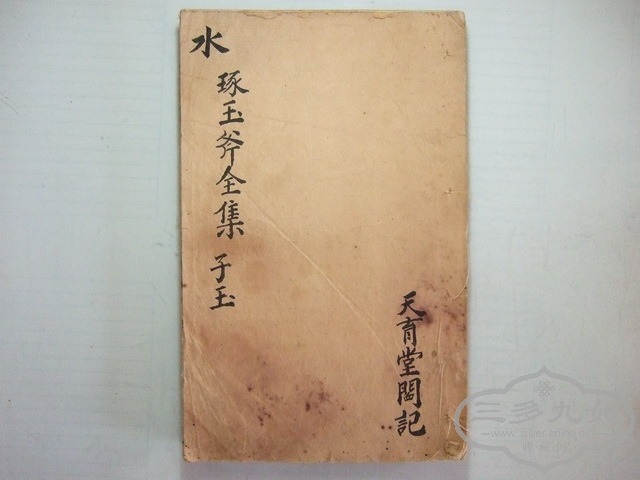 水
琢玉斧全集 子玉
天育堂閣記
三多九如